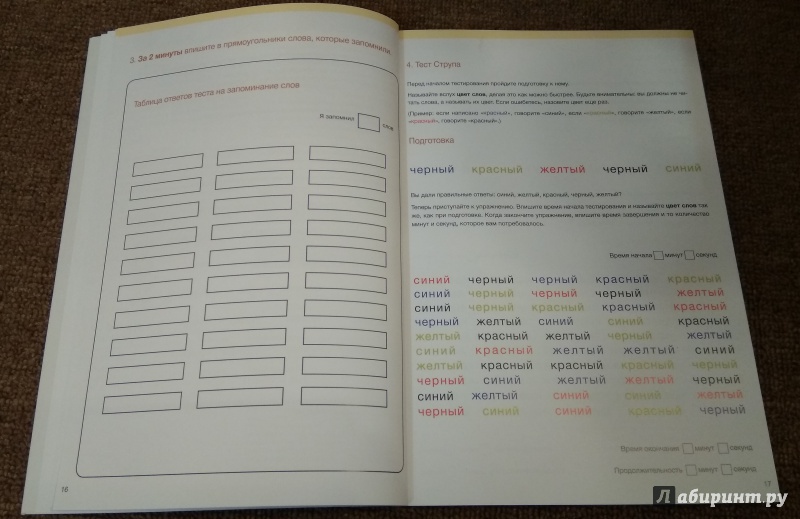 3. За 2 минуты впишите в прямоугольники слова, которые запомнили.
Таблица ответов теста на запоминание слов
Я запомнил слов
16
4. Тест Струпа
Перед началом тестирования пройдите подготовку к нему.
Называйте вслух цвет слов, делая это как можно быстрее. Будьте внимательны: вы должны не чи-
тать слова, а называть их цвет. Если ошибетесь, назовите цвет еще раз.
(Пример: если написано «красный», говорите «синий», если «красный», говорите «желтый», если
«красный», говорите «красный».)
Подготовка
черный красный желтый черный синий
Вы дали правильные ответы: синий, желтый, красный, черный, желтый?
Теперь приступайте к упражнению. Впишите время начала тестирования и называйте цвет слов так
же, как при подготовке. Когда закончите упражнение, впишите время завершения и то количество
минут и секунд, которое вам потребовалось.
Время начала минут секунд
синий черный черный красный красный
синий черный черный черный желтый
синий черный красный красный красный
черный желтый синий синий красный
желтый красный желтый черный желтый
синий красный желтый желтый синий
желтый красный красный красный черный
черный синий желтый желтый черный
синий желтый синий синий желтый
черный синий синий красный черный
Время окончания минут секунд
Продолжительность минут секунд
17
Лабиринт.ру